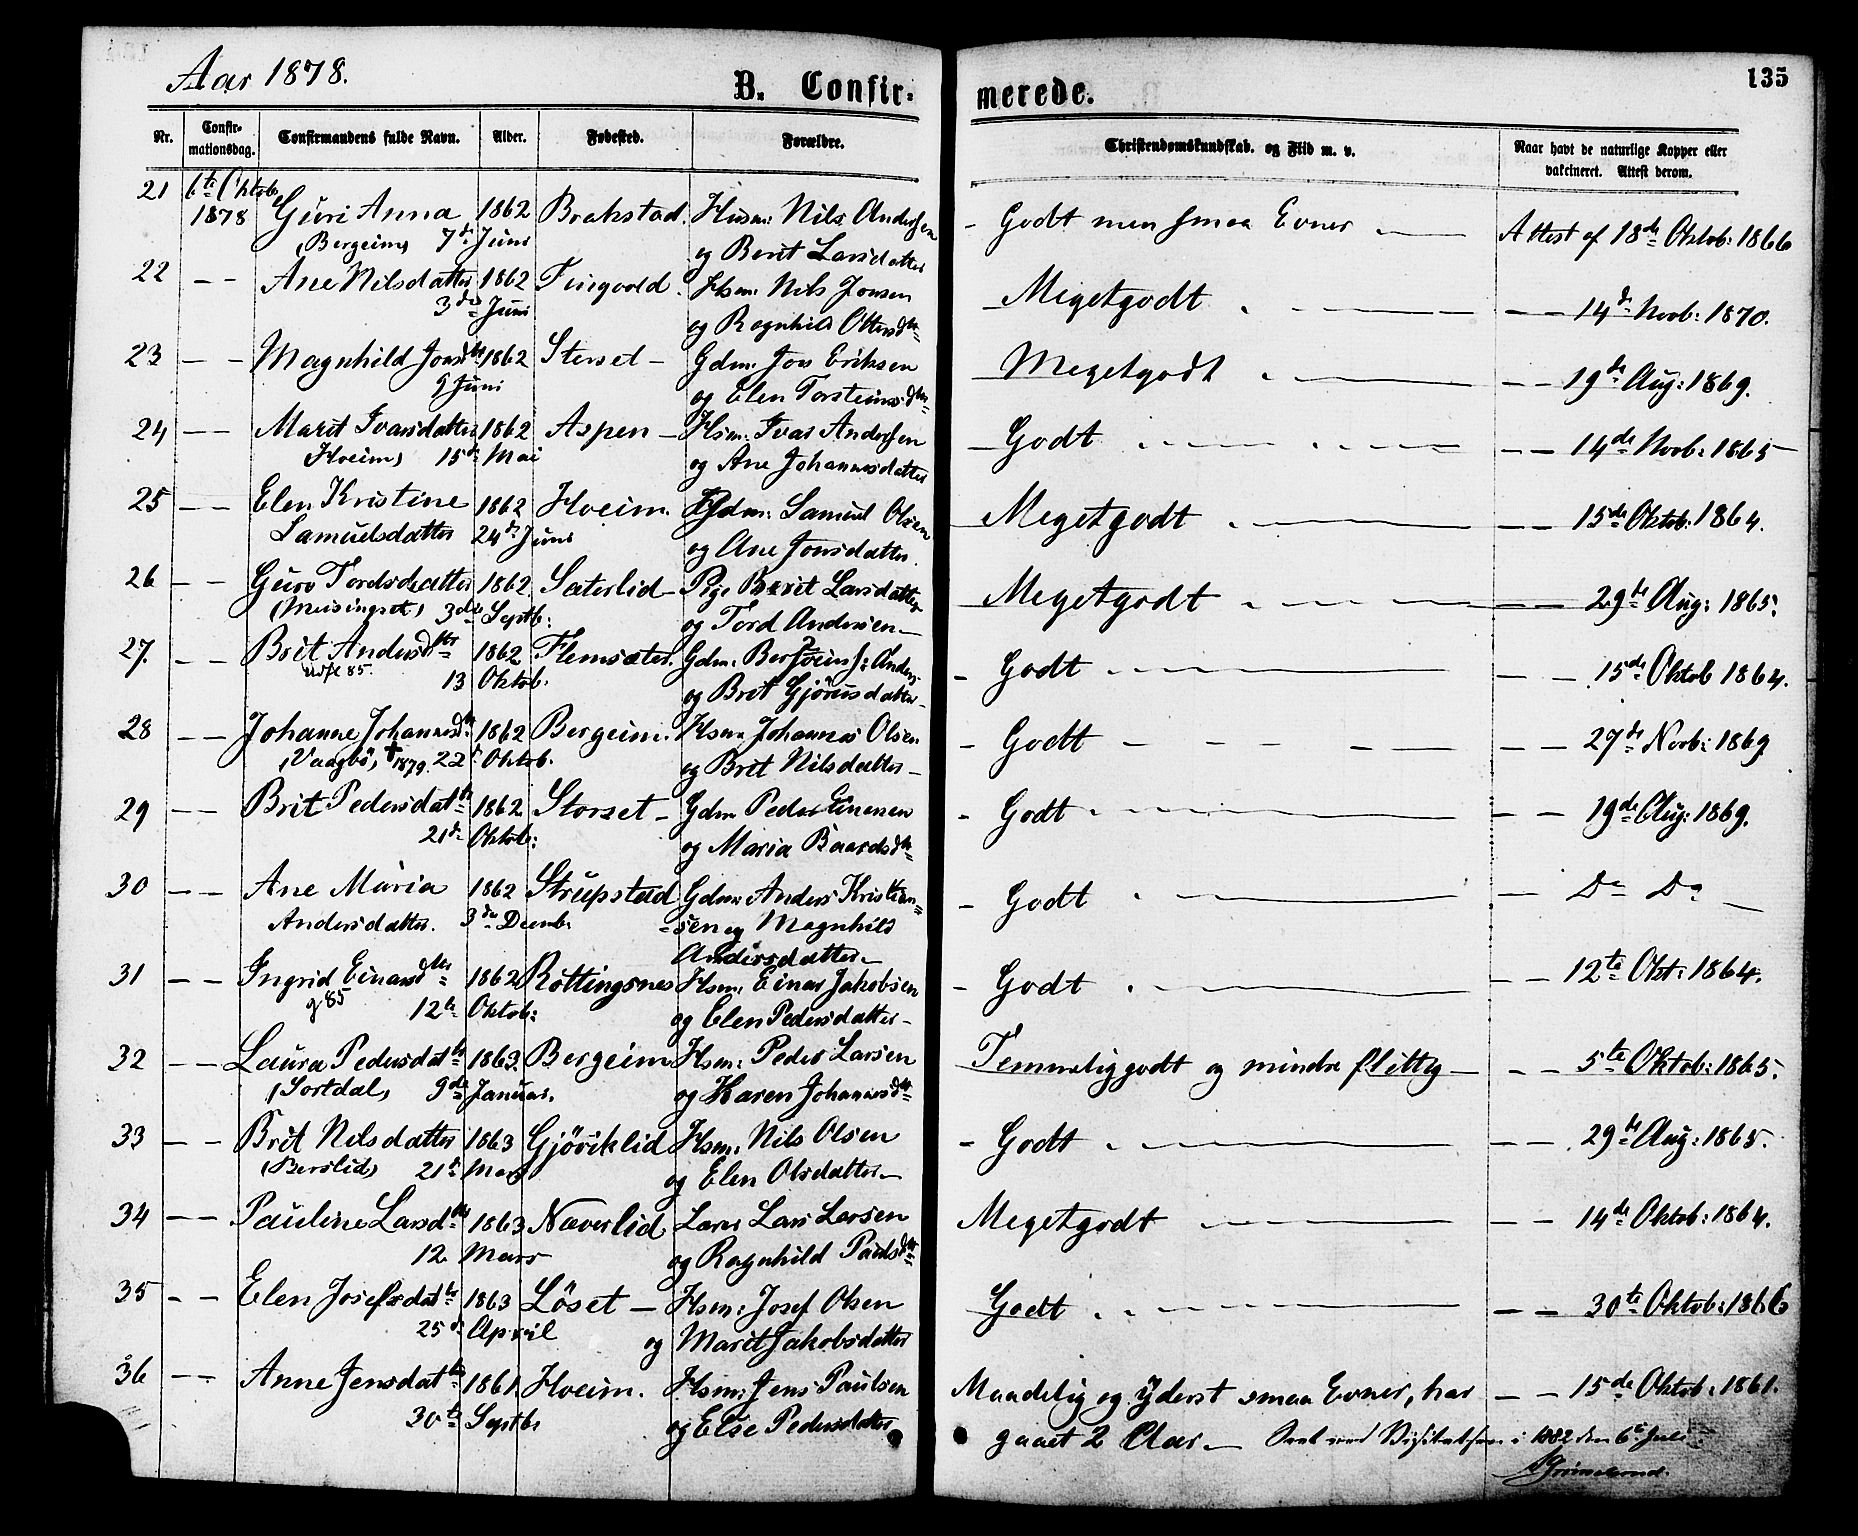 Aar 1878.
B. Confirmerede.
135
Nr. Confirmationsdag. Confirmandens fulde Navn. Alder. Fødested. Forældre. Christendomskundskab. og Flid m. v. Naar havt de naturlige Kopper eller vakcineret. Attest derom.
21 6te Oktob. 1878 Guri Anna 1862 Brakstad. Husm: Nils Andersen - Godt men smaa Evner — Attest af 18de Oktob: 1866
(Bergeim) 7de Juni og Berit Larsdatter
22 - - Ane Nilsdatter 1862 Tingvold. Hsm: Nils Jonsen - Megetgodt - - 14de Novb: 1870.
3de Juni og Ragnhild Oltersdtr
23 - - Magnhild Jonsdtr 1862 Storset - Gdm: Jon Eriksen Megetgodt - - 19de Aug: 1869.
9 Juni og Elen Torsteinsdtr
24 - - Marit Ivarsdatter 1862 Aspen - Hsm: Ivar Andersen - Godt - - 14de Novb: 1865
(Hoeim) 15de Mai og Ane Johannesdatter
25 - - Elen Kristine 1862 Hoeim. Gdm: Samuel Olsen - Megetgodt - - 15de Oktob: 1864.
Samuelsdatter 24de Juni og Ane Jonsdatter.
26 - - Guro Tordsdatter 1862 Sæterlid - Pige Berit Larsdatter - Megetgodt - - 29de Aug: 1865.
(Meisingset) 3de Septb: og Tord Andersen -
27. - - Brit Andersdtr 1862 Flemsæter. Gdm: - Godt - - 15de Oktob 1864.
85. 13 Oktob. og Brit Gjörusdatter -
28 - - Johanne Johannesdtr 1862 Bergeim. Hsm Johannes Olsen - Godt - - 27de Novb: 1869
(Vaagbö) † 1879. 22de Oktob. og Brit Nilsdatter -
29 - - Brit Pedersdattr 1862 Storset - Gdm Peder Einersen - Godt - - 19de Aug: 1869.
21de Oktob: og Maria Baardsdtr
30 - - Ane Maria 1862 Strupstad Gdm: Anders Kristian= - Godt - Do Do -
Andersdatter. 3de Decemb. =sen og Magnhild
Andersdatter -
31 - - Ingrid Einarsdtr 1862 Rottingsnes Hsm: Einar Jakobsen - Godt - - 12te Okt: 1864.
g 85 12te Oktob: og Elen Pedersdatter -
32 - - Laura Pedersdattr 1863. Bergeim Hsm: Peder Larsen Temmelig godt og mindre flittig - - - 5te Oktob: 1865.
(Sortdal) 9de Januar. og Karen Johannesdtr
33 - - Brit Nilsdatter 1863 Gjöviklid Hsm: Nils Olsen - Godt - - 29de Aug: 1865.
(Berslid) 21de Mars og Elen Olsdatter -
34 - - Pauline Larsdtr 1863 Næverlid Lærer Lars Larsen Megetgodt - - 14de Oktob: 1864.
12 Mars og Ragnhild Paulsdtr
35 - - Elen Josefsdattr 1863 Löset - Hsm: Josef Olsen Godt - - 30te Oktob: 1866
25de April og Marit Jakobsdatter
36 - - Anne Jensdattr 1861 Hoeim. Hsm: Jens Paulsen Maadelig og yderst smaa Evner, har - - 15de Oktob. 1861.
30te Septb: og Else Pedersdatter gaaet 2 Aar. - i 1882 den 6te Juli